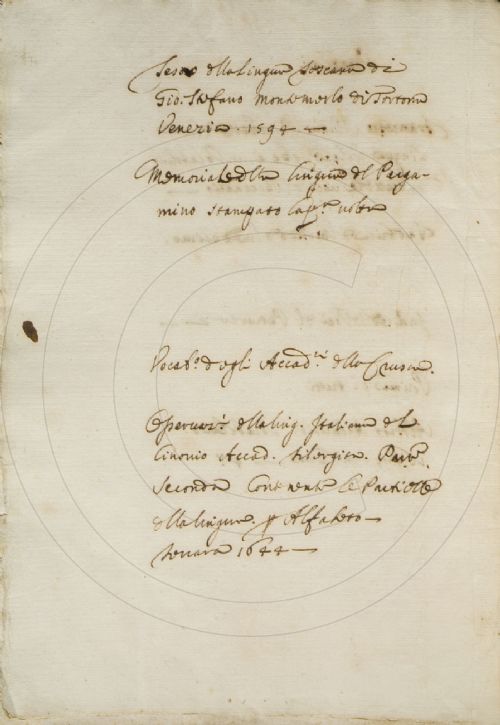 Tesoro della lingua toscana di
Gio: Stefano Montemerlo di Tortona
Venezia. 1594
Memoriale della lingua del Perga-
mino stampato la p.ª volta
Vocab.º degli Accad.ci della Crusca.
Osservaz.i della ling. Italiana del
Cinonio Accad. Filergita. Parte
Seconda Contenente le Particelle
della lingua. p Alfabeto
Ferrara 1644